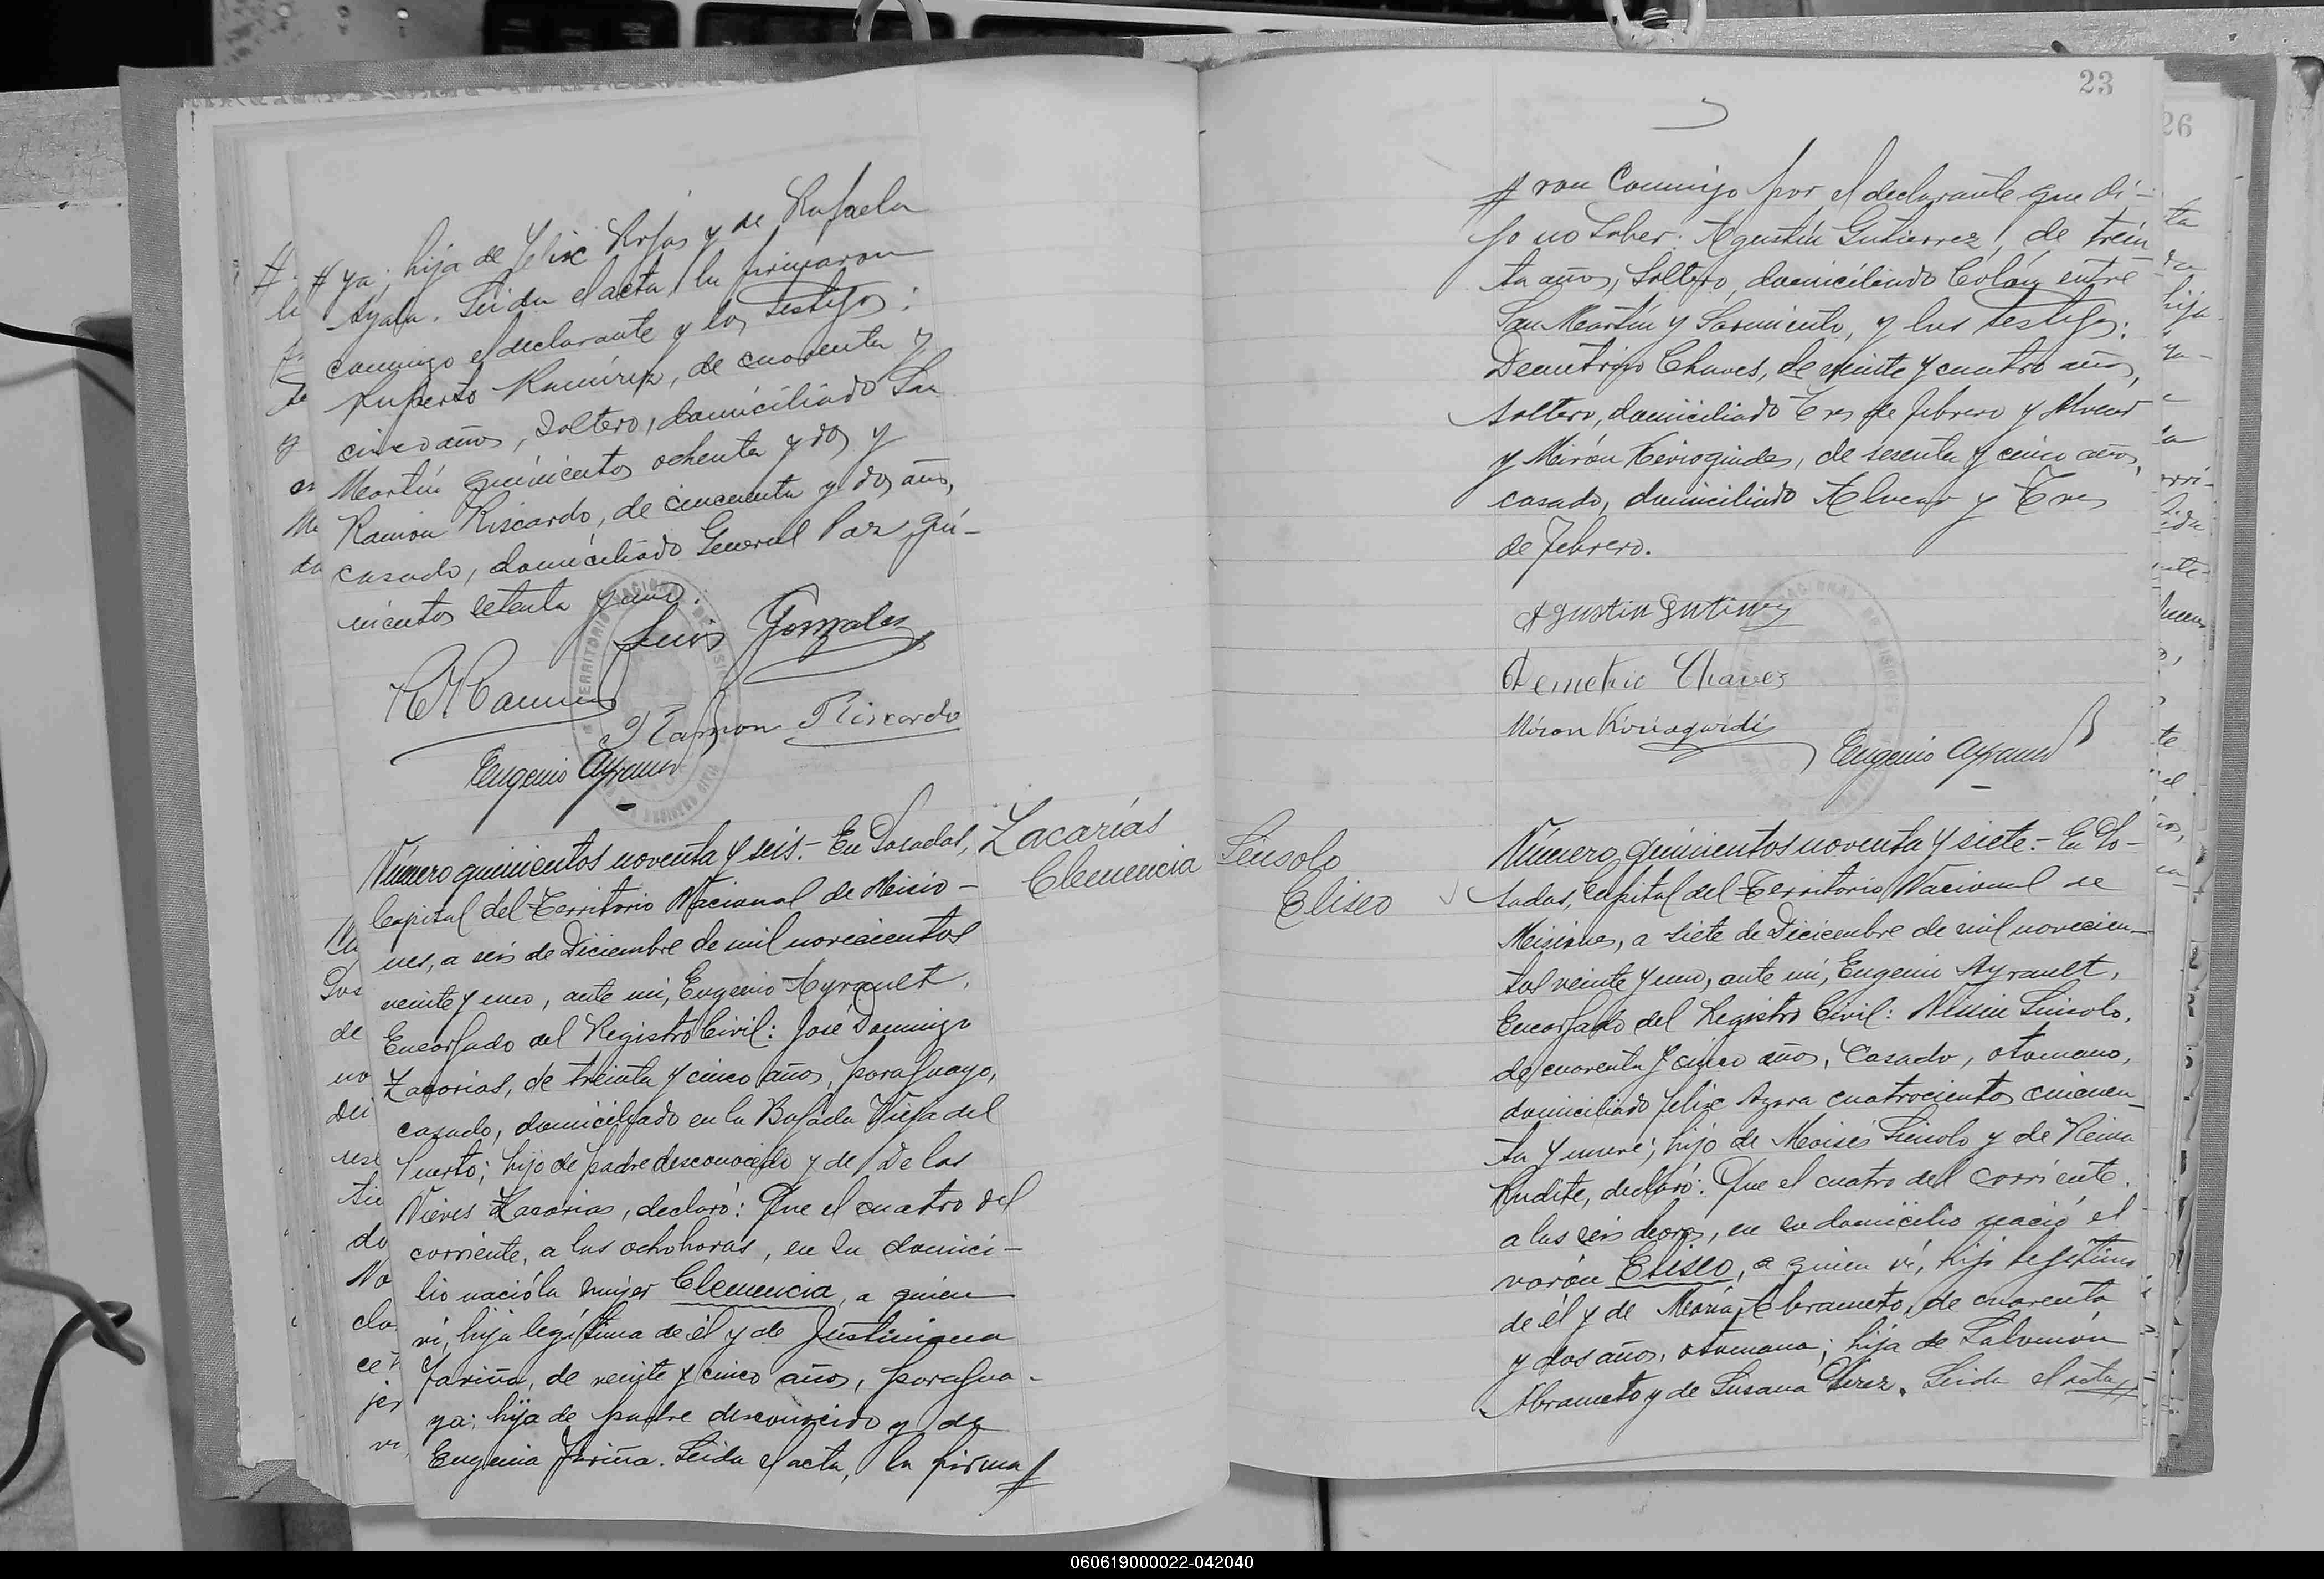 # ya; hija de Felix Rojas y de Rafaela
Ayala. Leida el acta, la firmaron
conmigo el declarante y los testigos:
Ruperto Ramírez, de cuarenta y
cinco años, soltero, domiciliado San
Martín quinientos ochenta y dos y
Ramón Riscardo, de cincuenta y dos años,
casado, domiciliado General Paz qui-
nientos setenta y uno.
Luis Gonzalez
Ramon Riscardo
Eugenio Ayrault
Número quinientos noventa y seis.- En Posadas,
Capital del Territorio Nacional de Misio-
nes, a seis de Diciembre de mil novecientos
veinte y uno, ante mi, Eugenio Ayrault,
Encargado del Registro Civil: José Domingo
Zacarias, de treinta y cinco años, paraguayo,
casado, domiciliado en la Bajada Vieja del
Puerto; hijo de padre desconocido y de De las
Nieves Zacarias, declaró: Que el cuatro del
corriente, a las ocho horas, en su domici-
lio nació la mujer Clemencia, a quien
vi, hija legítima de él y de Justiniana
Fariña, de veinte y cinco años, paragua-
ya; hija de padre desconocido y de
Eugenia Fariña. Leida el acta, la firma #
Zacarías
Clemencia
23
# ron conmigo por el declarante que di-
jo no saber: Agustín Gutierrez, de trein
ta años, soltero, domiciliado Colón entre
San Martín y Sarmiento, y los testigos:
Demetrio Chaves, de veinte y cuatro años,
soltero, domiciliado Tres de febrero y Alvear
y Mirón Keriogindes, de sesenta y cinco años,
casado, domiciliado Alvear y Tres
de febrero.
Agustin Gutierrez
Demetrio Chavez
Miron Kiriaguidis
Eugenio Ayrault
Sinsolo
Eliseo
Número quinientos noventa y siete.- En Po-
sadas, Capital del Territorio Nacional de
Misiones, a siete de Diciembre de mil novecien-
tos veinte y uno, ante mi, Eugenio Ayrault,
Encargado del Registro Civil: Nissin Sinsolo,
de cuarenta y cinco años, casado, otomano,
domiciliado Felix Azara cuatrocientos cincuen-
ta y nueve; hijo de Moisés Sinsolo y de Reina
Rudite, declaró: Que el cuatro del corriente,
a las seis horas, en su domicilio nació el
varón Eliseo, a quien vi, hijo legítimo
de él y de María Abrameto, de cuarenta
y dos años, otomana; hija de Salomón
Abrameto y de Susana Perez. Leida el acta #
26
060619000022-042040